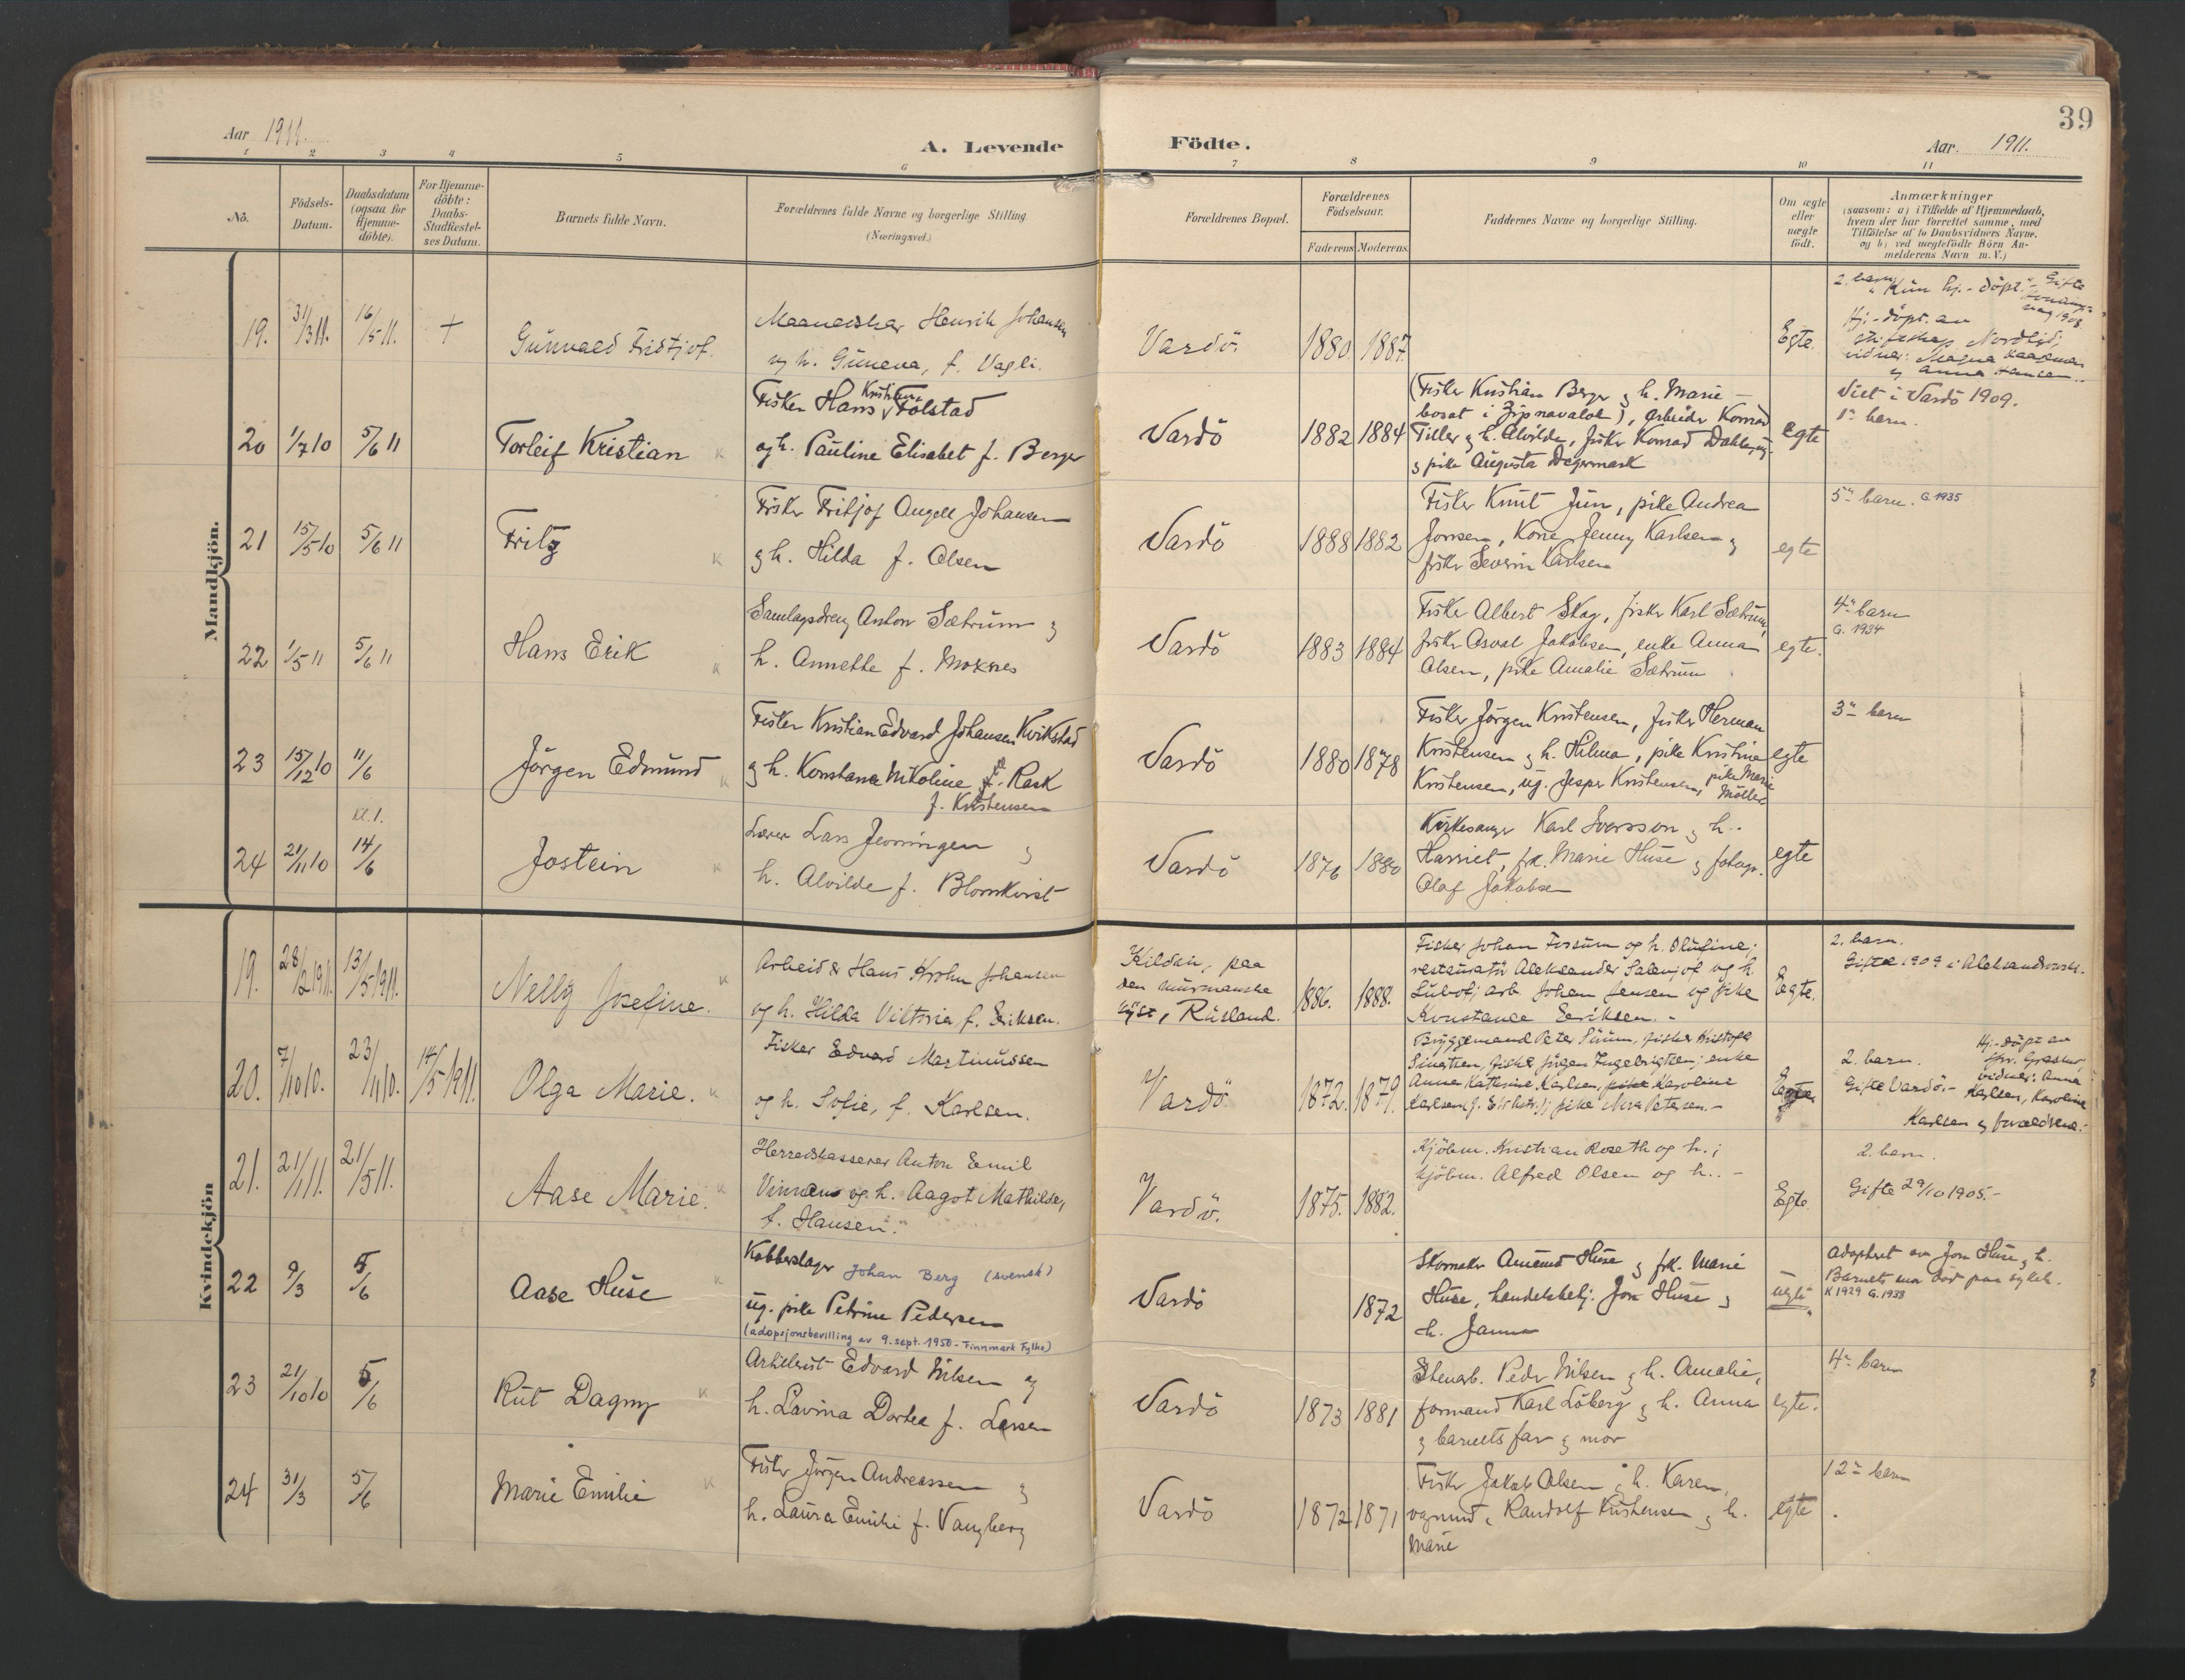 39
Aar 1911.
A. Levende Födte.
Aar 1911.
1 2 3 4 5 6 7 8 9 10 11
No.
Födsels-
Datum.
Daabsdatum
(ogsaa for
Hjemme-
döbte).
For Hjemme-
döbte:
Daabs-
Stadfæstel-
ses Datum.
Barnets fulde Navn.
Forældrenes fulde Navne og borgerlige Stilling.
(Næringsvei.)
Forældrenes Bopæl.
Forældrenes
Fødselsaar.
Faderens Moderens
Faddernes Navne og borgerlige Stilling.
Om ægte
eller
uægte
födt.
Anmærkninger
(saasom: a) i Tilfælde af Hjemmedaab,
hvem der har forrettet samme, med
Tilföielse af to Daabsvidners Navne.
og b) ved uægtefödte Börn An-
melderens Navn m. V.)
Mandkjön.
19. 31/3 11. 16/5 11. +
Gunvald Fridtjof.
Henrik Johansen
og h. f. Vagli.
Vardö.
1880. 1887.
Egte.
2. barn
Kun hj.-döpt.
Gifte
Hj.-döpt. av
Nordlid;
vidner:
og Anna Hansen.
20 1/7 10 5/6 11
Torleif Kristian K
Fisker Hans Kristian Folstad
og h. Pauline Elisabet f. Berger
Vardö
1882 1884
(Fisker Kristian Berger og h. Marie –
bosat i Zipnavolok), arbeider Konrad
Tiller og h. Alvilde, fisker Konrad Dahl
og pike Augusta Degermark
egte
Viet i Vardö 1909.
1ste barn.
21 15/5 10 5/6 11
Fritz K
Fisker Fritjof Angell Johansen
og h. Hilda f. Olsen
Vardö
1888 1882
Fisker Knut Jun, pike Andrea
Jonsen, Kone Jenny Karlsen og
fisker Severin Karlsen
egte
5te barn. G. 1935
22 1/5 11 5/6 11
Hans Erik K
Samlagsdreng Anton Sætrum og
h. Annette f. Moxnes
Vardö
1883 1884
Fisker Albert Skog, fisker Karl Sætrum,
fisker Osvat Jakobsen, enke Anna
Olsen, pike Amalie Sætrum
egte.
4de barn
G. 1934
23 15/12 10 11/6
Jörgen Edmund K
Fisker Kristian Edvard Johansen Kvikstad
og h. Konstance Nikoline f. Rask
f. Kristensen
Vardö
1880 1878
Fisker Jörgen Kristensen, fisker Herman
Kristensen og h. Hilma, pike Kristine
Kristensen, ug. Jesper Kristensen, pike Marie
Möller
egte
3de barn
kl. 1.
24 21/11 10 14/6
Jostein K
Lærer Lars Jenningen og
h. Alvilde f. Blomkvist
Vardö
1876 1880
Kirkesanger Karl Sversson og h.
Harriet, frk. Marie Huse og fotogr.
Olaf Jakobsen
egte
Kvindekjön
19. 28/2 1911. 13/5 1911.
Nelly Josefine. K
Arbeider Hans Krohn Johansen
og h. Hilda Viktoria f. Eriksen.
Kildin, paa
den murmanske
kyst, Rusland.
1886. 1888.
Fisker Johan Fossum og h. Olufine;
restauratör Aleksander og h.
arb. Johan Jensen og pike
Konstance Eriksen.
Egte.
2. barn.
Gifte 1909 i Aleksandrovsk.
20. 7/10 10. 23/11 10. 14/5 1911.
Olga Marie. K
Fisker Edvard Martinussen
og h. Sofie, f. Karlsen.
Vardö.
1872. 1879.
Bryggemand Peter fisker Kristofa
fisker Jörgen Ingebrigtsen; enke
Anna Katherine Karlsen, pike Karoline
Karlsen pike Petersen.
Egte
2. barn.
Gifte Vardö.
Hj.-döpt av
vidner: Anna
Karlsen, Karoline
Karlsen og forældrene.
21. 21/1 11. 21/5 11.
Aase Marie. K
Herredskasserer Anton Emil
og h. Aagot Mathilde,
f. Hansen.
Vardö.
1875. 1882.
Kjöbm. Kristian Roseth og h.;
kjöbm. Alfred Olsen og h..–
Egte.
2. barn.
Gifte 29/10 1905.–
22 9/3 5/6
Aase Huse K
Kobberslager Johan Berg (svensk)
ug. pike Petrine Pedersen
(adopsjonsbevilling av 9. sept. 1950 - Finnmark Fylke)
Vardö
1872
Skomaker Amund Huse og frk. Marie
Huse, handelsbetj. Jon Huse og
h. Janna
uegte
Adopteret av Jon Huse og h.
Barnets mor död paa sykeh.
K 1929 G. 1933
23 21/10 10 5/6
Rut Dagny K
Edvard Nilsen og
h. Lavina Dortea f. Larsen
Vardö
1873 1881
Stenarb. Peder Nilsen og h. Amalie,
formand Karl Löberg og h. Anna
og barnets far og mor
egte.
4de barn
24 31/3 5/6
Marie Emilie K
Fisker Jörgen Andreassen og
h. Laura Emilie f. Vangberg
Vardö
1872 1871
Fisker Jakob Olsen og h. Karen,
vognmd. Randolf Kristensen og h.
Marie
egte
12te barn